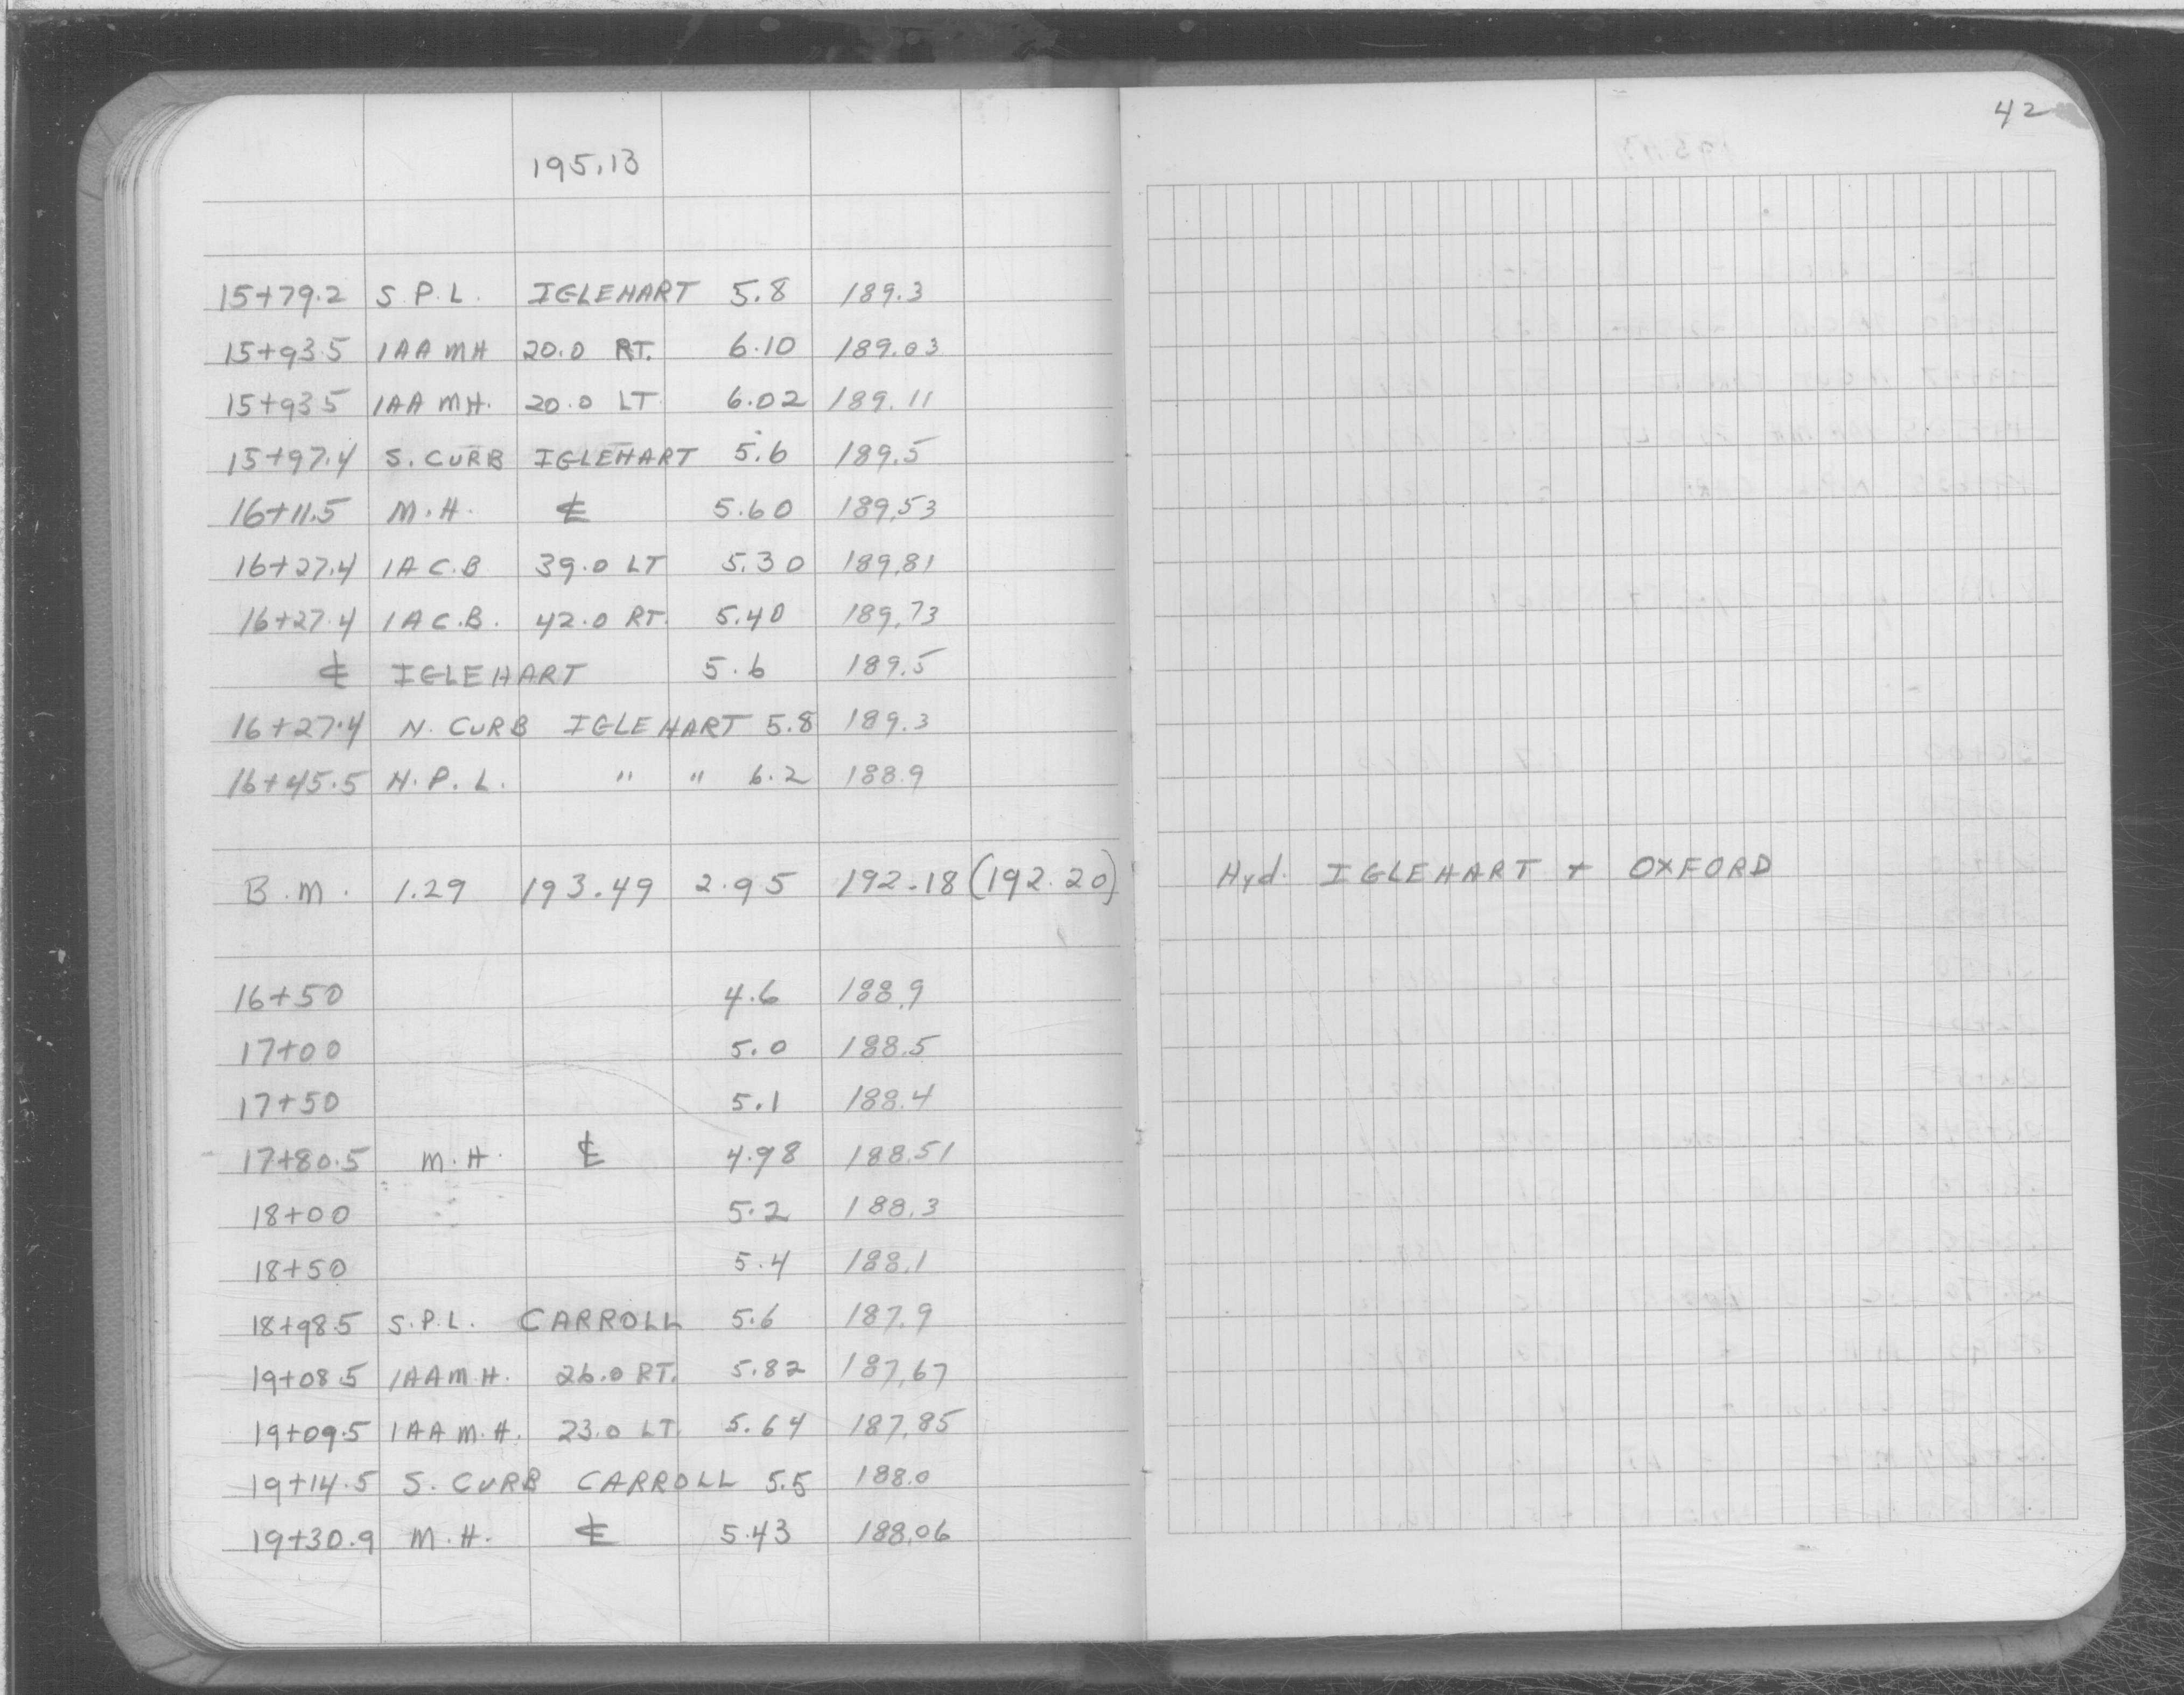 42
195.13
15+79.2 S.P.L. IGLEHART 5.8 189.3
15+93.5 1AA MH 20.0 RT. 6.10 189.03
15+93.5 1AA MH. 20.0 LT. 6.02 189.11
15+97.4 S. CURB IGLEHART 5.6 189.5
16+11.5 M.H. ℄ 5.60 189.53
16+27.4 1A C.B 39.0 LT 5.30 189.81
16+27.4 1A C.B. 42.0 RT. 5.40 189.73
℄ IGLEHART 5.6 189.5
16+27.4 N. CURB IGLEHART 5.8 189.3
16+45.5 N.P.L. " " 6.2 188.9
B.M. 1.29 193.49 2.95 192.18 (192.20) Hyd. IGLEHART + OXFORD
16+50 4.6 188.9
17+00 5.0 188.5
17+50 5.1 188.4
17+80.5 M.H. ℄ 4.98 188.51
18+00 5.2 188.3
18+50 5.4 188.1
18+98.5 S.P.L. CARROLL 5.6 187.9
19+08.5 1AA M.H. 26.0 RT. 5.82 187.67
19+09.5 1AA M.H. 23.0 LT. 5.64 187.85
19+14.5 S. CURB CARROLL 5.5 188.0
19+30.9 M.H. ℄ 5.43 188.06